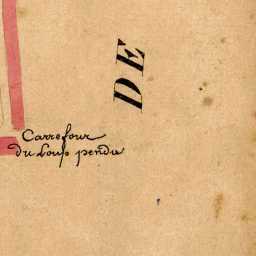 DE
Carrefour
du Loup pendu